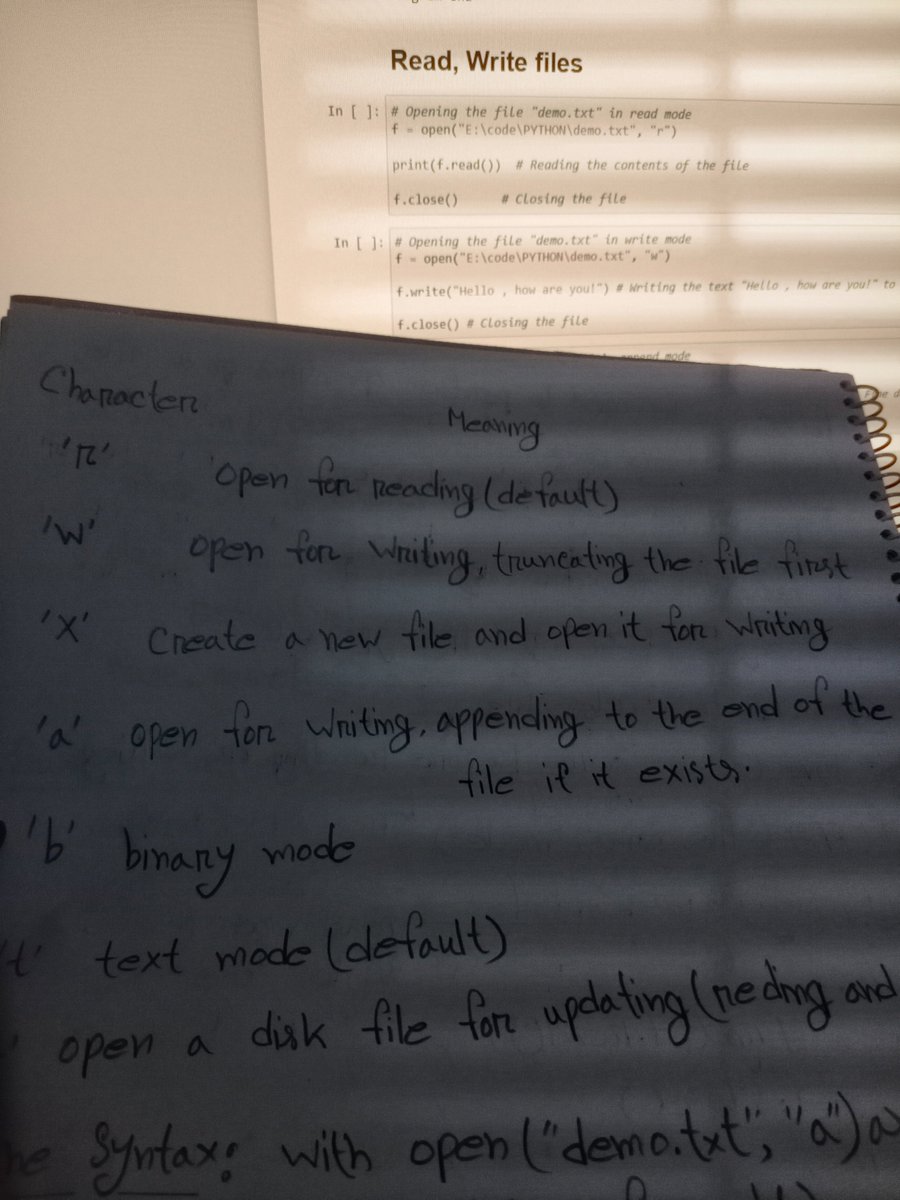 Read, Write files
In [ ]: # Opening the file "demo.txt" in read mode
f = open("E:\code\PYTHON\demo.txt", "r")
print(f.read()) # Reading the contents of the file
f.close() # Closing the file
In [ ]: # Opening the file "demo.txt" in write mode
f = open("E:\code\PYTHON\demo.txt", "w")
f.write("Hello , how are you!") # Writing the text "Hello , how are you!" to
f.close() # Closing the file
append mode
Character Meaning
'r' open for reading (default)
'w' open for writing, truncating the file first
'x' Create a new file and open it for writing
'a' open for writing, appending to the end of the
file if it exists.
'b' binary mode
't' text mode (default)
' open a disk file for updating (reding and
Syntax: with open("demo.txt", "a") a